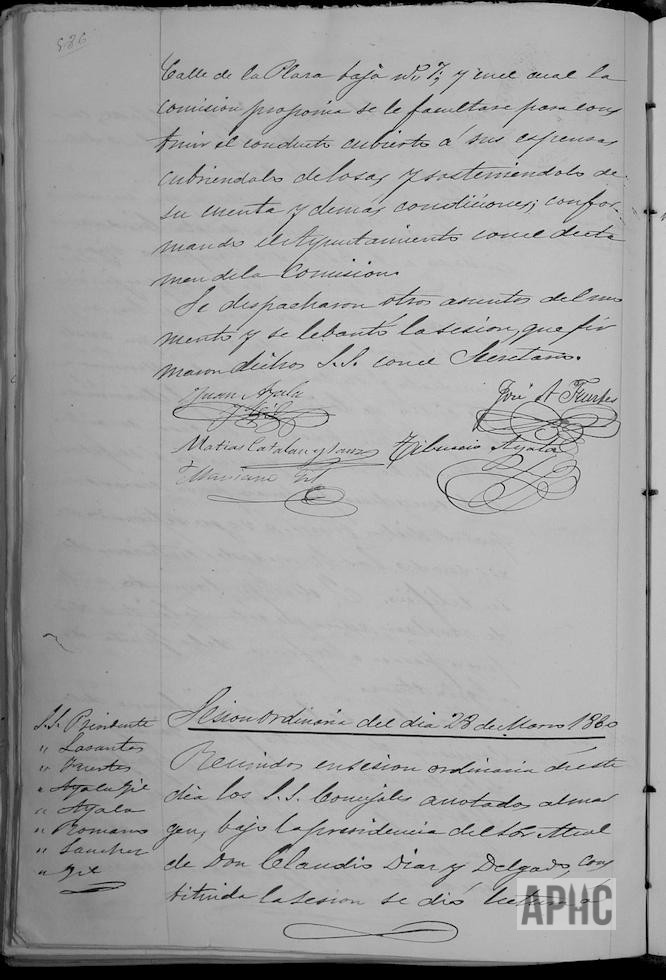 536
Calle de la Plaza bajo nº 7, y en el cual la
comision proponia se le facultase para cons
truir el conducto cubierto á sus espensas
cubriendolo de losas y sosteniendolo de
su cuenta y demás condiciones; confor-
mando el Ayuntamiento con el dicta
men de la Comision.
Se despacharon otros asuntos del mo
mento y se lebantó la sesion, que fir
maron dichos S.S. con el Secretario.
Juan Ayala
y Gil
José A Fuertes
Matias Catalan y Sanz
Tiburcio Ayala
Mariano Gil
Sesion ordinaria del dia 23 de Marzo 1880
S.S. Presidente
" Lasantas
" Fuertes
" Ayala Gil
" Ayala
" Romano
" Sanchez
" Gil
Reunidos en sesion ordinaria de este
dia los S.S. Concejales anotados al mar
gen, bajo la presidencia del Sor Alcal
de Don Claudio Diaz y Delgado, cons
tituida la sesion se dió lectura á
APHC